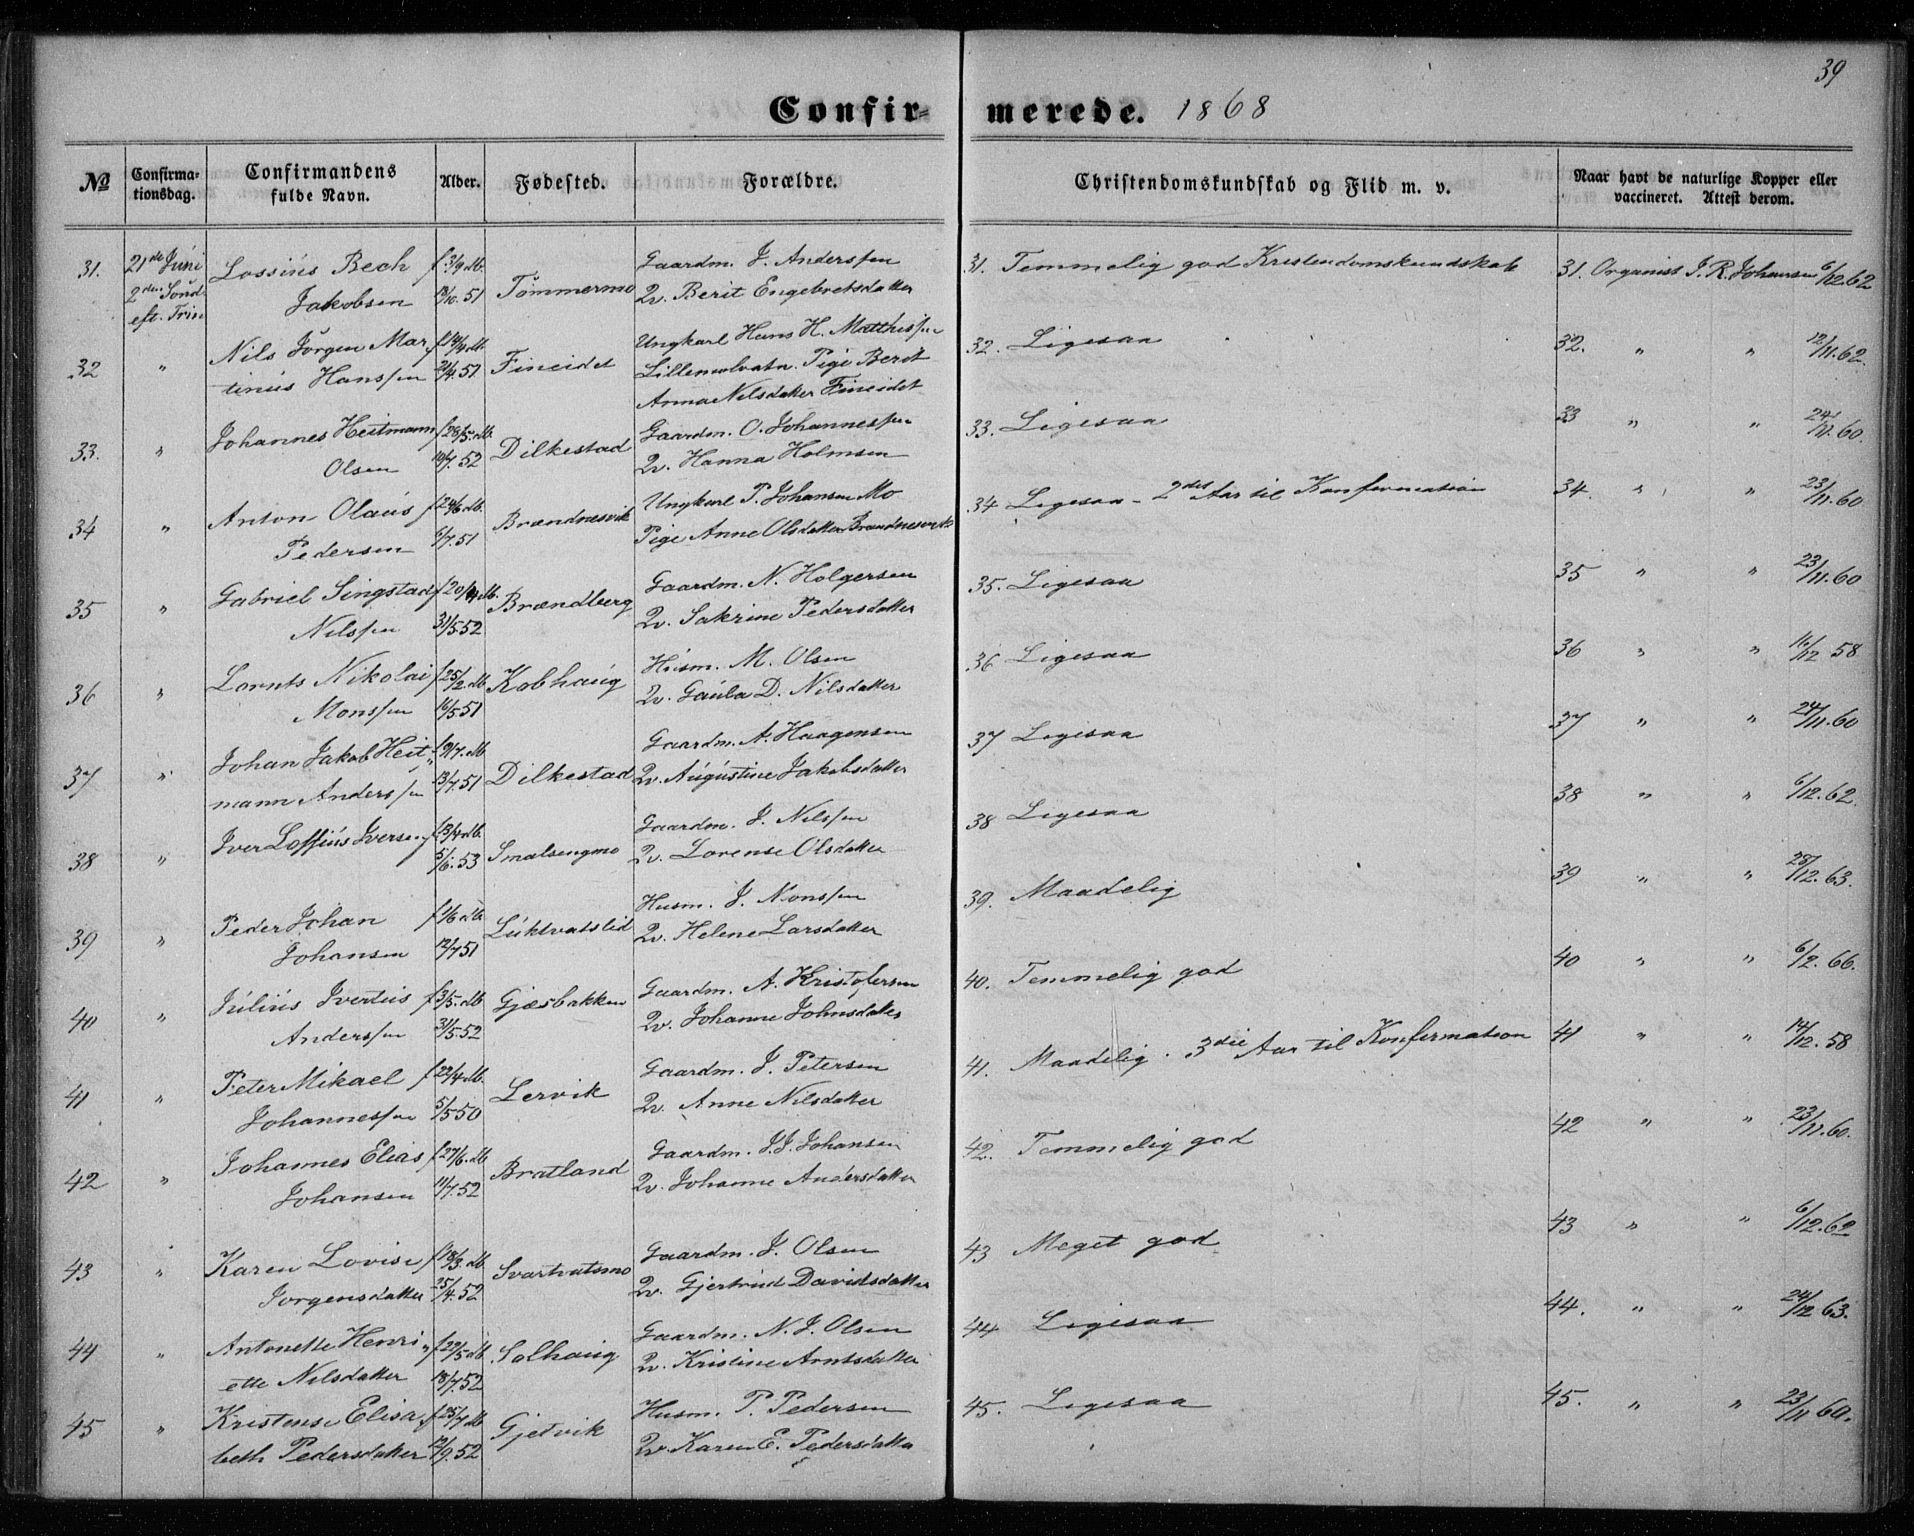 39
Confirmerede. 1868
No
Confirmationsdag.
Confirmandens fulde Navn.
Alder.
Fødested.
Forældre.
Christendomskundskab og Flid m. v.
Naar havt de naturlige Kopper eller vaccineret. Attest derom.
31. 21de Juni Lossius Bech f 3/9 db. Gaardm. J. Anderssen 31. Temmelig god Kristendomskundskab 31. Organist J. R. Johansen 6/12.62
2den Sönd. eft. Trin Jakobsen 12/10.51 Tömmermo Qv. Berit Engebretsdatter
32 " Nils Jörgen Martinus Hanssen f 14/4 db. 21/4.51 Fineidet Ungkarl Hans H. Matthissen 32. Ligesaa 32. " " 12/11.62.
Lillemolvatn. Pige Berit
Anna Nilsdatter Fineidet
33. " Johannes Heitmann f 28/5. db. Dilkestad Gaardm. O. Johannessen 33. Ligesaa 33 " " 24/11.60.
Olsen 10/7.52 Qv. Hanna Holmsen
34 " Anton Olaus f 24/6 db. Brændnesvik Ungkarl P. Johansen Mo 34 Ligesaa - 2det Aar til Konfirmation 34. " " 23/11.60
Pedersen 6/7.51 Pige Anne Olsdatter Brændnesvik
35 " Gabriel Singstad f 20/4 db. Brændberg Gaardm. N. Holgersen 35. Ligesaa 35 " " 23/11.60
Nilssen 31/5.52 Qv. Sakrine Pedersdatter
36 " Lornts Nikolai f 25/2. db Kobhaug Husm. M. Olsen 36 Ligesaa 36 " " 16/12 58
Monssen 16/5.51 Qv. Gaula D. Nilsdatter
37 " Johan Jakob Heit- f 9/7. db Dilkestad Gaardm. A. Haagensen 37 Ligesaa 37 " " 24/11.60
mann Anderssen 13/7.51 Qv. Augustine Jakobsdatter
38 " Iver Loffius Iversen f 13/4 db. Smalsengmo Gaardm. J. Nilssen 38 Ligesaa 38 " " 6/12.62.
5/6.53 Qv. Lorense Olsdatter
39 " Peder Johan f 1/6 db. Luktvatslid Husm. J. Monssen 39. Maadelig 39 " " 28/12.63.
Johansen 12/7 51 Qv. Helene Larsdatter
40 " Julius Ivertus f 3/5. db Gjæsbakken Gaardm. A. Kristofersen 40. Temmelig god 40 " " 6/2.66.
Anderssen 31/5.52 Qv. Johanne Johnsdatter
41 " Peter Mikael f 22/4 db. Lervik Gaardm. J. Petersen 41. Maadelig. 3die Aar til Konfirmation 41 " " 14/12.58
Johannessen 5/5 50 Qv. Anne Nilsdatter
42 " Johannes Elias f 27/6. db Bratland Gaardm. J. J. Johansen 42. Temmelig god 42 " " 23/11.60.
Johansen 11/7.52 Qv. Johanne Andersdatter
43 " Karen Lovise f 18/3. db Svartvatsmo Gaardm. J. Olsen 43 Meget god 43 " " 6/12.62
Jorgensdatter 25/4.52 Qv. Gjertrud Davidsdatter
44 " Antonette Henri- f 22/5 db Solhaug Gaardm. N. J. Olsen 44 Ligesaa 44. " " 24/12 63.
ette Nilsdatter 18/7.52 Qv. Kristine Arntsdatter
45 " Kristense Elisa- f 25/7 db Gjetvik Husm. P. Pedersen 45. Ligesaa 45. " " 23/11 60.
beth Pedersdatter 12/9.52 Qv Karen E. Pedersdatter